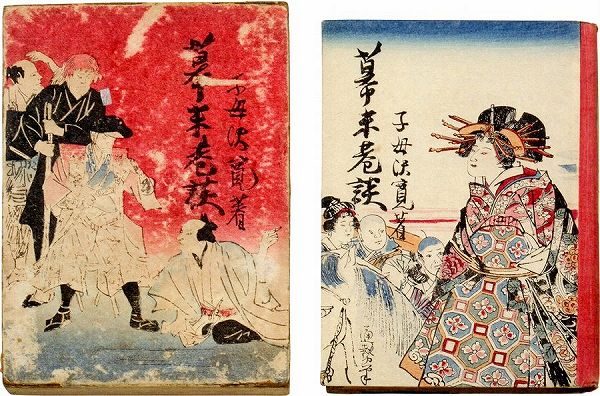 子母沢寛著
幕末巷談
子母沢寛著
幕末巷談